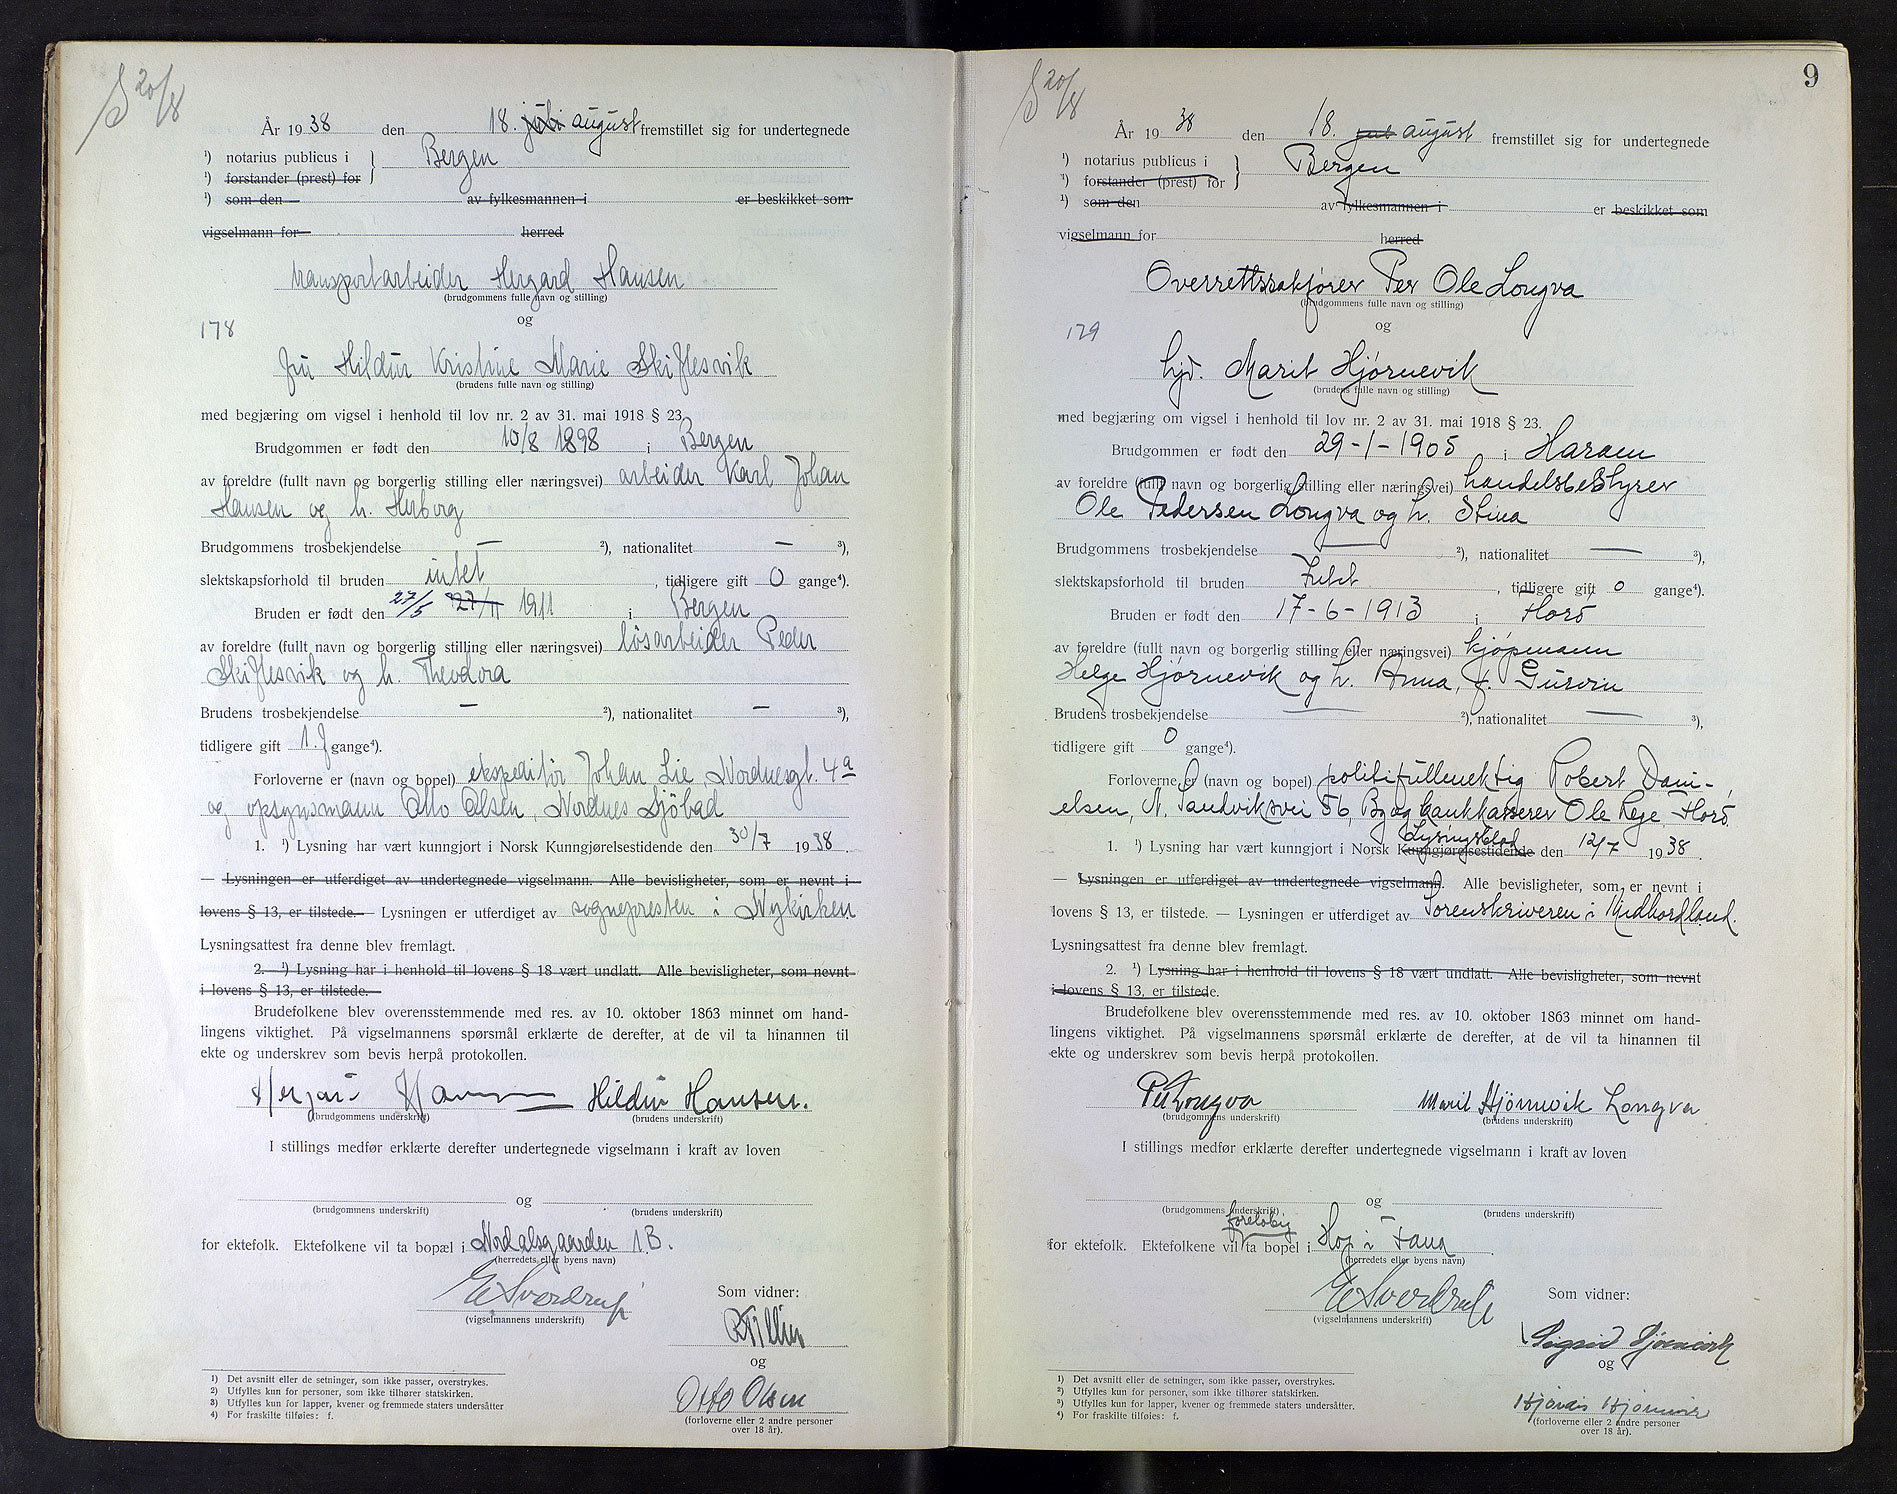 S 20/8
År 1938 den 18. juli august fremstillet sig for undertegnede
¹) notarius publicus i } Bergen
¹) forstander (prest) for
¹) som den av fylkesmannen i er beskikket som
vigselmann for herred
transportarbeider Hergard Hansen
(brudgommens fulle navn og stilling)
og
178
fru Hildur Kristine Marie Skiflesvik
(brudens fulle navn og stilling)
med begjæring om vigsel i henhold til lov nr. 2 av 31. mai 1918 § 23.
Brudgommen er født den 10/8 1898 i Bergen
av foreldre (fullt navn og borgerlig stilling eller næringsvei) arbeider Karl Johan
Hansen og h. Herborg
Brudgommens trosbekjendelse — ²), nationalitet — ³),
slektskapsforhold til bruden intet, tidligere gift 0 gange⁴).
Bruden er født den 27/5 27/11 1911 i Bergen
av foreldre (fullt navn og borgerlig stilling eller næringsvei) løsarbeider Peder
Skiflesvik og h. Theodora
Brudens trosbekjendelse — ²), nationalitet — ³),
tidligere gift 1. f gange⁴).
Forloverne er (navn og bopel) ekspeditør Johan Lie, Nordnesgt. 4a
og opsynsmann Otto Olsen, Nordnes Sjöbad
1. ¹) Lysning har vært kunngjort i Norsk Kunngjørelsestidende den 30/7 1938.
— Lysningen er utferdiget av undertegnede vigselmann. Alle bevisligheter, som er nevnt i
lovens § 13, er tilstede. — Lysningen er utferdiget av sognepresten i Nykirken
Lysningsattest fra denne blev fremlagt.
2. ¹) Lysning har i henhold til lovens § 18 vært undlatt. Alle bevisligheter, som nevnt
i lovens § 13, er tilstede.
Brudefolkene blev overensstemmende med res. av 10. oktober 1863 minnet om hand-
lingens viktighet. På vigselmannens spørsmål erklærte de derefter, at de vil ta hinannen til
ekte og underskrev som bevis herpå protokollen.
Hergard Hansen Hildur Hansen.
(brudgommens underskrift) (brudens underskrift)
I stillings medfør erklærte derefter undertegnede vigselmann i kraft av loven
og
(brudgommens underskrift) (brudens underskrift)
for ektefolk. Ektefolkene vil ta bopæl i Nordalsgaarden 1.B.
(herredets eller byens navn)
E Sverdrup
(vigselmannens underskrift)
Som vidner:
og
Otto Olsen
(forloverne eller 2 andre personer
over 18 år).
¹) Det avsnitt eller de setninger, som ikke passer, overstrykes.
²) Utfylles kun for personer, som ikke tilhører statskirken.
³) Utfylles kun for lapper, kvener og fremmede staters undersåtter
⁴) For fraskilte tilføies: f.
S 20/8
9
År 1938 den 18. august fremstillet sig for undertegnede
¹) notarius publicus i } Bergen
¹) forstander (prest) for
¹) som den av fylkesmannen i er beskikket som
vigselmann for herred
Overrettssakfører Per Ole Longva
(brudgommens fulle navn og stilling)
og
179
frk. Marit Hjørnevik
(brudens fulle navn og stilling)
med begjæring om vigsel i henhold til lov nr. 2 av 31. mai 1918 § 23.
Brudgommen er født den 29-1-1905 i Haram
av foreldre (fullt navn og borgerlig stilling eller næringsvei) handelsbestyrer
Ole Pedersen Longva og h. Stina
Brudgommens trosbekjendelse — ²), nationalitet — ³),
slektskapsforhold til bruden Intet, tidligere gift 0 gange⁴).
Bruden er født den 17-6-1913 i Florö
av foreldre (fullt navn og borgerlig stilling eller næringsvei) kjøpmann
Helge Hjørnevik og h. Anna, f. Gurvin
Brudens trosbekjendelse — ²), nationalitet — ³),
tidligere gift 0 gange⁴).
Forloverne er (navn og bopel) politifullmektig Robert Dani-
elsen, N. Sandviksvei 56, By og bankkasserer Ole Lege, Florö.
1. ¹) Lysning har vært kunngjort i Norsk Kunngjørelsestidende Lysingsblad den 12/7 1938.
— Lysningen er utferdiget av undertegnede vigselmann. Alle bevisligheter, som er nevnt i
lovens § 13, er tilstede. — Lysningen er utferdiget av Sorenskriveren i Midhordland.
Lysningsattest fra denne blev fremlagt.
2. ¹) Lysning har i henhold til lovens § 18 vært undlatt. Alle bevisligheter, som nevnt
i lovens § 13, er tilstede.
Brudefolkene blev overensstemmende med res. av 10. oktober 1863 minnet om hand-
lingens viktighet. På vigselmannens spørsmål erklærte de derefter, at de vil ta hinannen til
ekte og underskrev som bevis herpå protokollen.
Per Longva Marit Hjørnevik Longva
(brudgommens underskrift) (brudens underskrift)
I stillings medfør erklærte derefter undertegnede vigselmann i kraft av loven
og
(brudgommens underskrift) (brudens underskrift)
foreløbig
for ektefolk. Ektefolkene vil ta bopel i Hop i Fana
(herredets eller byens navn)
E Sverdrup
(vigselmannens underskrift)
Som vidner:
Sigrid Hjørnevik
og
Hjørdis Hjørnevik
(forloverne eller 2 andre personer
over 18 år).
¹) Det avsnitt eller de setninger, som ikke passer, overstrykes.
²) Utfylles kun for personer, som ikke tilhører statskirken.
³) Utfylles kun for lapper, kvener og fremmede staters undersåtter.
⁴) For fraskilte tilføies: f.